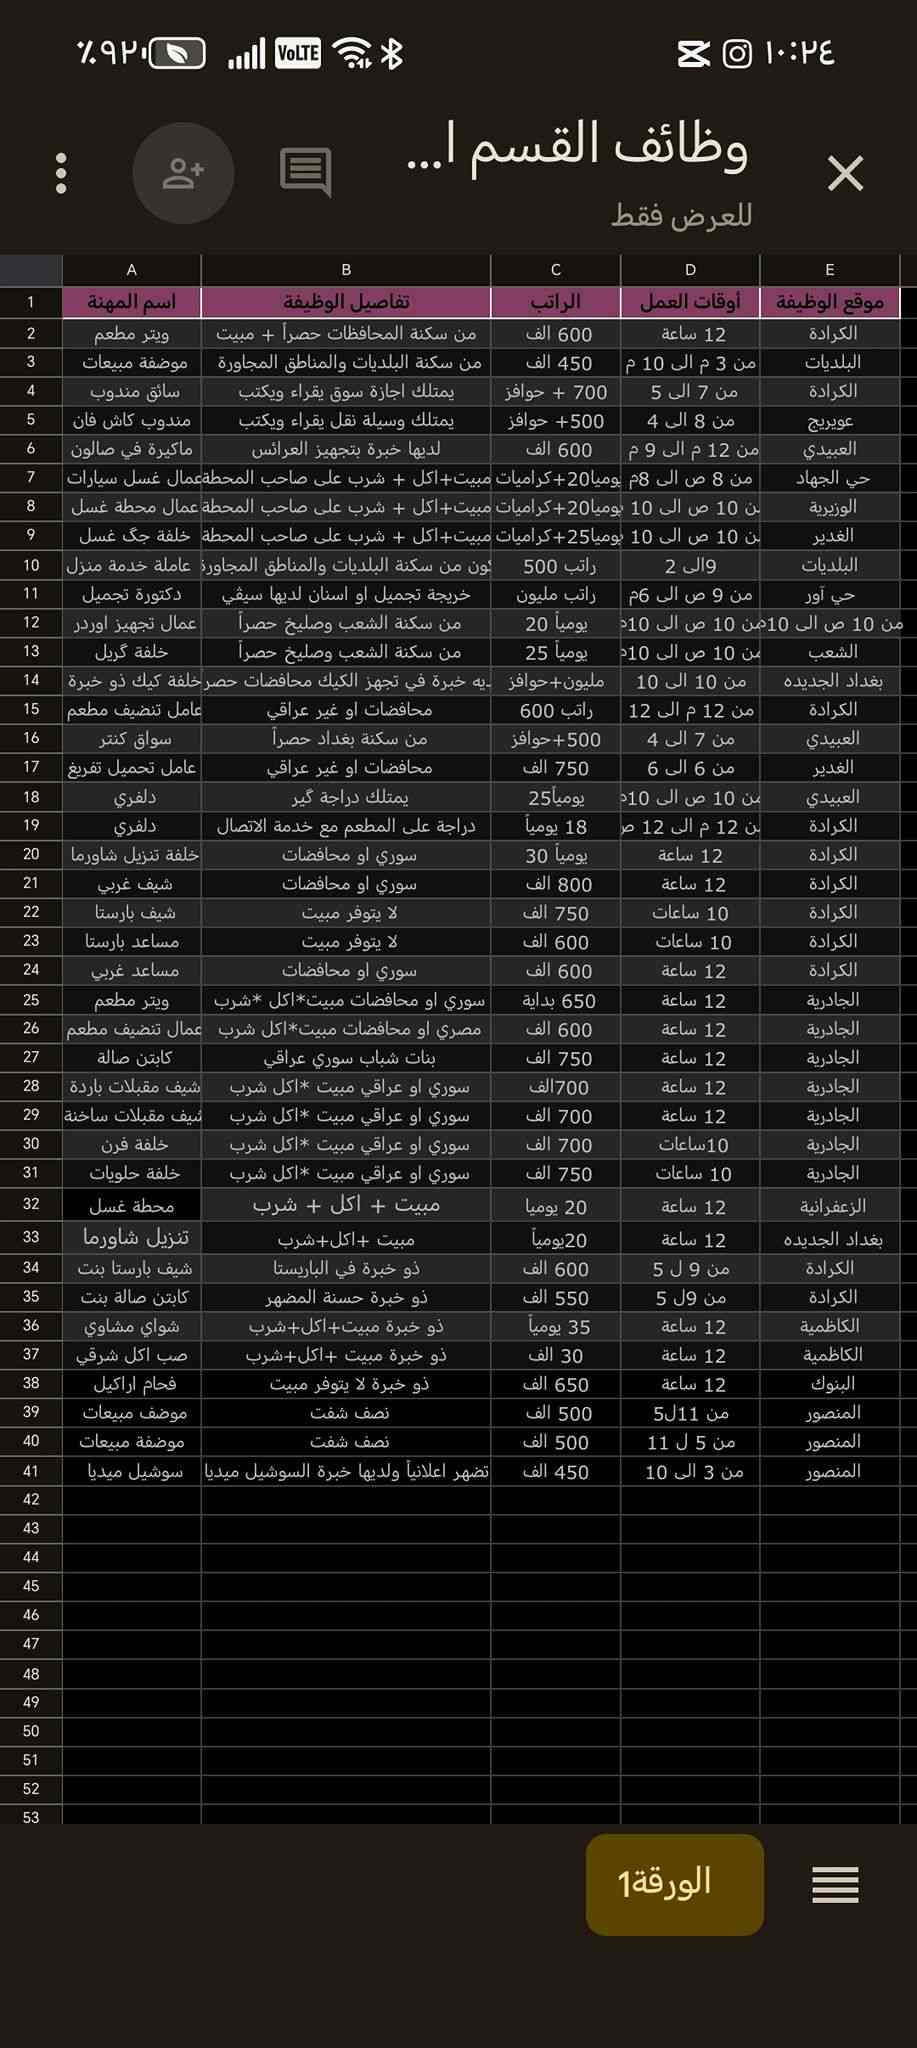 ١٠:٢٤ VoLTE ٪٩٢
وظائف القسم ا...
للعرض فقط
A B C D E
1 اسم المهنة تفاصيل الوظيفة الراتب أوقات العمل موقع الوظيفة
2 ويتر مطعم من سكنة المحافظات حصراً + مبيت 600 الف 12 ساعة الكرادة
3 موضفة مبيعات من سكنة البلديات والمناطق المجاورة 450 الف من 3 م الى 10 م البلديات
4 سائق مندوب يمتلك اجازة سوق يقراء ويكتب 700 + حوافز من 7 الى 5 الكرادة
5 مندوب كاش فان يمتلك وسيلة نقل يقراء ويكتب 500+ حوافز من 8 الى 4 عويريج
6 ماكيرة في صالون لديها خبرة بتجهيز العرائس 600 الف من 12 م الى 9 م العبيدي
7 عمال غسل سيارات مبيت+اكل + شرب على صاحب المحطة يوميا20+كراميات من 8 ص الى 8م حي الجهاد
8 عمال محطة غسل مبيت+اكل + شرب على صاحب المحطة يوميا20+كراميات من 10 ص الى 10 الوزيرية
9 خلفة جگ غسل مبيت+اكل + شرب على صاحب المحطة يوميا25+كراميات من 10 ص الى 10 الغدير
10 عاملة خدمة منزل من سكنة البلديات والمناطق المجاورة راتب 500 9الى 2 البلديات
11 دكتورة تجميل خريجة تجميل او اسنان لديها سيڤي راتب مليون من 9 ص الى 6م حي آور
12 عمال تجهيز اوردر من سكنة الشعب وصليخ حصراً يومياً 20 من 10 ص الى 10م من 10 ص الى 10م
13 خلفة گريل من سكنة الشعب وصليخ حصراً يومياً 25 من 10 ص الى 10م الشعب
14 خلفة كيك ذو خبرة خبرة في تجهز الكيك محافضات مليون+حوافز من 10 الى 10 بغداد الجديده
15 عامل تنضيف مطعم محافضات او غير عراقي راتب 600 من 12 م الى 12 الكرادة
16 سواق كنتر من سكنة بغداد حصراً 500+حوافز من 7 الى 4 العبيدي
17 عامل تحميل تفريغ محافضات او غير عراقي 750 الف من 6 الى 6 الغدير
18 دلفري يمتلك دراجة گير يومياً25 من 10 ص الى 10م العبيدي
19 دلفري دراجة على المطعم مع خدمة الاتصال 18 يومياً من 12 م الى 12 ص الكرادة
20 خلفة تنزيل شاورما سوري او محافضات يومياً 30 12 ساعة الكرادة
21 شيف غربي سوري او محافضات 800 الف 12 ساعة الكرادة
22 شيف بارستا لا يتوفر مبيت 750 الف 10 ساعات الكرادة
23 مساعد بارستا لا يتوفر مبيت 600 الف 10 ساعات الكرادة
24 مساعد غربي سوري او محافضات 600 الف 12 ساعة الكرادة
25 ويتر مطعم سوري او محافضات مبيت*اكل *شرب 650 بداية 12 ساعة الجادرية
26 عمال تنضيف مطعم مصري او محافضات مبيت*اكل شرب 600 الف 12 ساعة الجادرية
27 كابتن صالة بنات شباب سوري عراقي 750 الف 12 ساعة الجادرية
28 شيف مقبلات باردة سوري او عراقي مبيت *اكل شرب 700الف 12 ساعة الجادرية
29 شيف مقبلات ساخنة سوري او عراقي مبيت *اكل شرب 700 الف 12 ساعة الجادرية
30 خلفة فرن سوري او عراقي مبيت *اكل شرب 700 الف 10ساعات الجادرية
31 خلفة حلويات سوري او عراقي مبيت *اكل شرب 750 الف 10 ساعات الجادرية
32 محطة غسل مبيت + اكل + شرب 20 يوميا 12 ساعة الزعفرانية
33 تنزيل شاورما مبيت +اكل+شرب 20يومياً 12 ساعة بغداد الجديده
34 شيف بارستا بنت ذو خبرة في الباريستا 600 الف من 9 ل 5 الكرادة
35 كابتن صالة بنت ذو خبرة حسنة المضهر 550 الف من 9ل 5 الكرادة
36 شواي مشاوي ذو خبرة مبيت+اكل+شرب 35 يومياً 12 ساعة الكاظمية
37 صب اكل شرقي ذو خبرة مبيت +اكل+شرب 30 الف 12 ساعة الكاظمية
38 فحام اراكيل ذو خبرة لا يتوفر مبيت 650 الف 12 ساعة البنوك
39 موضف مبيعات نصف شفت 500 الف من 11ل5 المنصور
40 موضفة مبيعات نصف شفت 500 الف من 5 ل 11 المنصور
41 سوشيل ميديا تضهر اعلانياً ولديها خبرة السوشيل ميديا 450 الف من 3 الى 10 المنصور
42
43
44
45
46
47
48
49
50
51
52
53
الورقة1